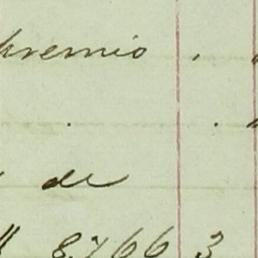 premio .
. .
de
8,766 3